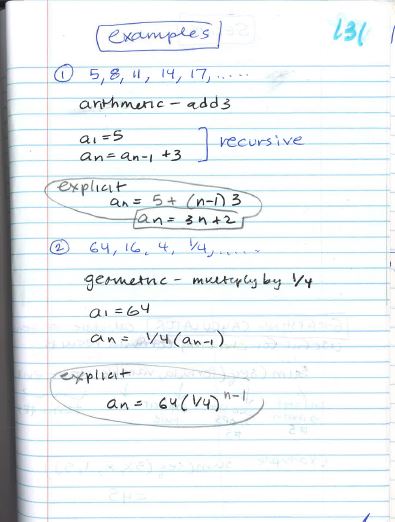 examples
131
① 5, 8, 11, 14, 17, .....
arithmetic - add 3
a1 = 5
an = an-1 + 3
recursive
explicit
an = 5 + (n-1) 3
an = 3n+2
② 64, 16, 4, 1/4, .....
geometric - multiply by 1/4
a1 = 64
an = 1/4 (an-1)
explicit
an = 64 (1/4)^n-1